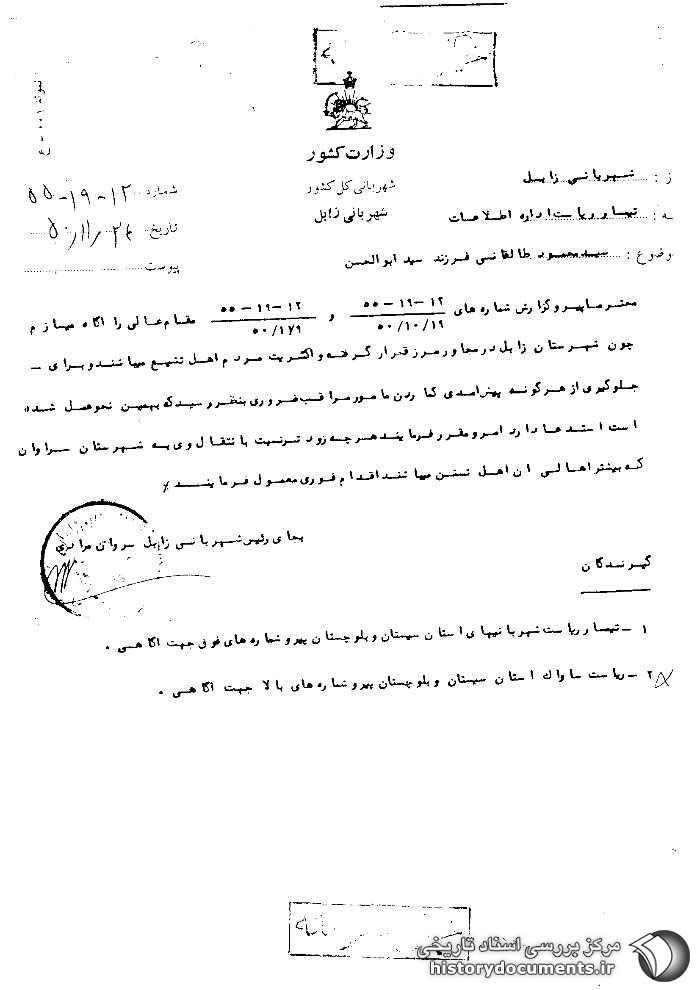 نمونه ۱۰۰۱ - ع
وزارت کشور
شهربانی کل کشور
شهربانی زابل
شماره ۱۲-۱۹-۵۵
تاریخ ۵۰/۱۱/۲۴
پیوست
از : شهربانی زابل
به : تیمسار ریاست اداره اطلاعات
موضوع : سید محمود طالقانی فرزند سید ابوالحسن
محترما پیرو گزارش شماره های ۱۲-۱۹-۵۵ ۵۰/۱۰/۱۹ و ۱۲-۱۹-۵۵ ۵۰/۱۷۹ مقام عالی را آگاه میسازم
چون شهرستان زابل در مجاور مرز قرار گرفته و اکثریت مردم اهل تشیع میباشند و برای -
جلوگیری از هرگونه پیش آمدی گماردن مامور مراقب ضروری بنظر رسید که بهمین نحو عمل شده
است استدعا دارد امر و مقرر فرمایند هرچه زودتر نسبت بانتقال وی به شهرستان سراوان
که بیشتر اهالی آن اهل تسنن میباشند اقدام فوری معمول فرمایند
بجای رئیس شهربانی زابل سروان
گیرندگان
۱ - تیمسار ریاست شهربانیهای استان سیستان و بلوچستان پیرو شماره های فوق جهت آگاهی .
۲ - ریاست ساواک استان سیستان و بلوچستان پیرو شماره های بالا جهت آگاهی .
مرکز بررسی اسناد تاریخی
historydocuments.ir